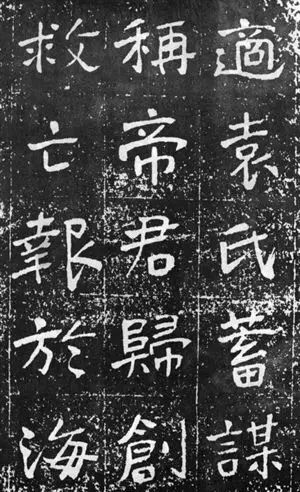 適袁氏蓄謀
稱帝君歸創
救亡報於海